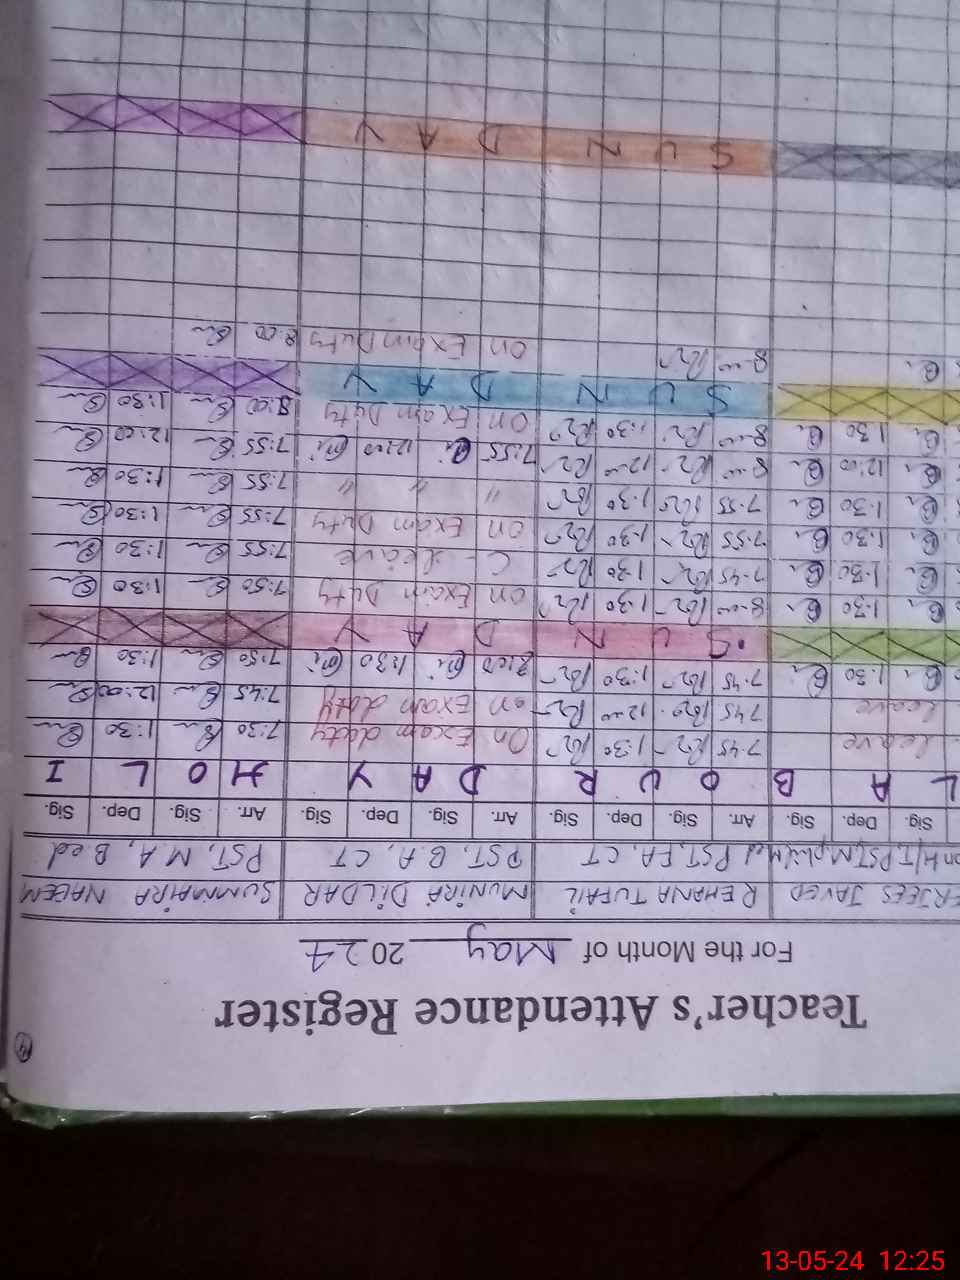 Teacher's Attendance Register
For the Month of May 2024
JAVED REHANA TUFAIL MUNIRA DILDAR SUMMAIRA NAEEM
H/T, PST, M.phil, M.ed PST, FA, CT PST, B.A, CT PST, M A, B.ed
Sig. Dep. Sig. Arr. Sig. Dep. Sig. Arr. Sig. Dep. Sig. Arr. Sig. Dep. Sig.
L A B O U R D A Y H O L I
leave 7.45 1:30 On Exam duty 7:30 1:30
leave 7.45 12:00 on Exam duty 7:45 12:00
1.30 7.45 1:30 8:00 1:30 7:50 1:30
S U N D A Y
1.30 8:00 1:30 on Exam Duty 7:50 1:30
1.30 7.45 1:30 C - leave 7:55 1:30
1:30 7.55 1:30 on Exam Duty 7:55 1:30
1:30 7.55 1.30 " " " 7:55 1:30
12:00 8:00 12:00 7:55 12:00 7:55 12:00
1:30 8:00 1:30 ON Exam Duty 8:00 1:30
S U N D A Y
8:00 on Exam Duty 8:00
S U N D A Y
13-05-24 12:25